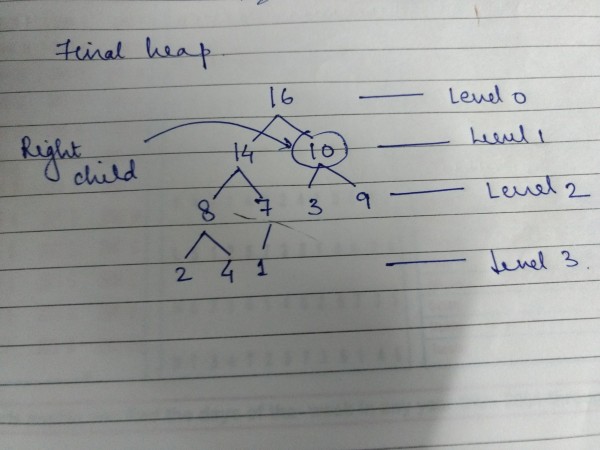 Final heap
16 Level 0
Right child
14 10 Level 1
8 7 3 9 Level 2
2 4 1 Level 3.